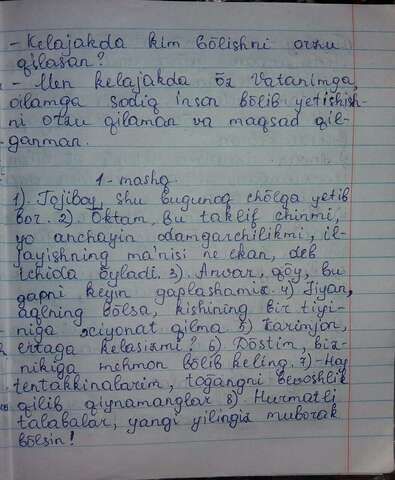 - Kelajakda kim bōlishni orzu
qilasan?
- Men kelajakda ōz Vatanimga,
oilamga sodiq inson bōlib yetishish-
ni orzu qilaman va maqsad qil-
ganman.
1-mashq.
1). Tojiboy, shu bugunoq chōlga yetib
bor. 2). Ōktam, bu taklif chinmi,
yo anchayin odamgarchilikmi, il-
jayishning ma'nisi ne ekan, deb
ichida ōyladi. 3). Anvar, qōy, bu
gapni keyin gaplashamiz. 4) Jiyan,
aqlning bōlsa, kishining bir tiyi-
niga xiyonat qilma 5) Karimjon,
ertaga kelasizmi? 6) Dōstim, biz-
nikiga mehmon bōlib keling. 7)-Hay
tentakkinalarim, toğangni bevoshlik
qilib qiynamanglar 8). Hurmatli
talabalar, yangi yilingiz muborak
bōlsin!